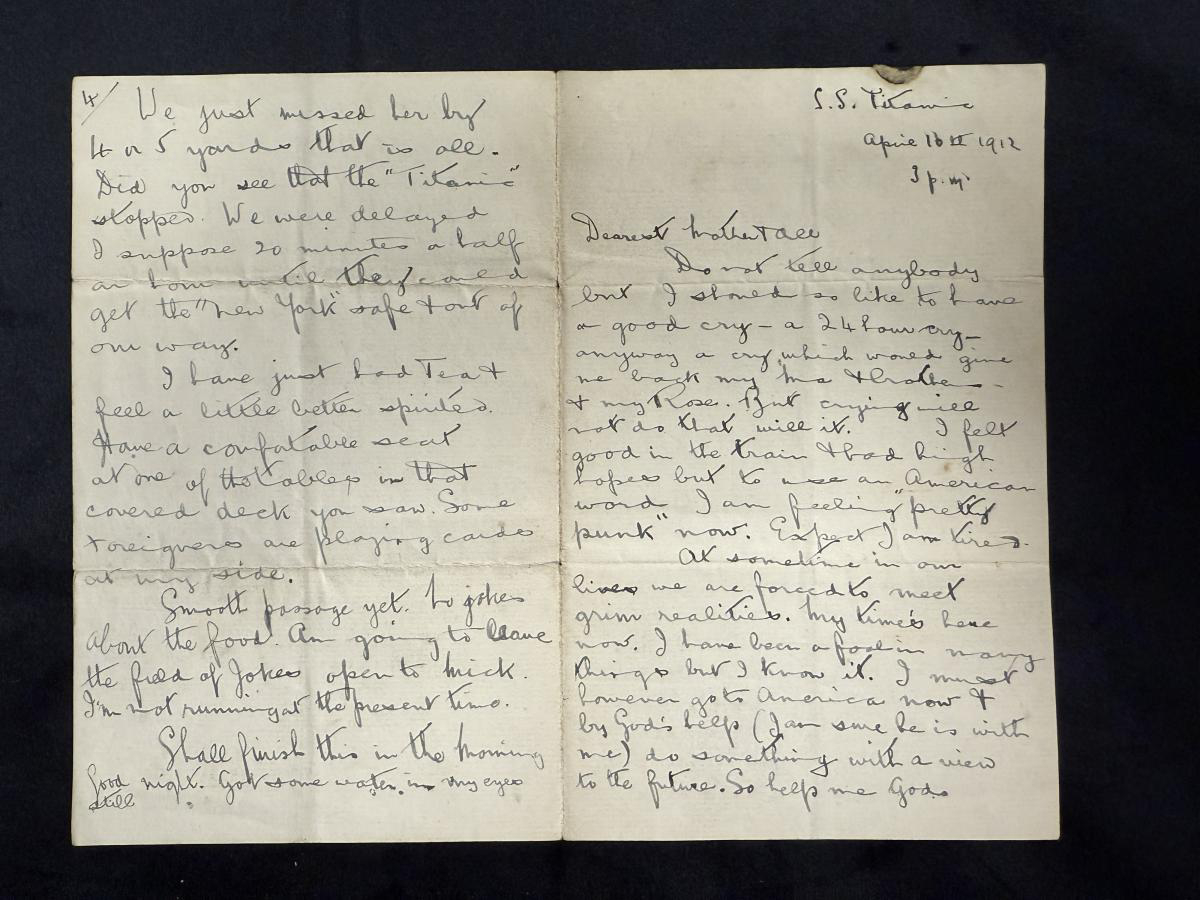 S.S. Titanic
April 10th 1912
3 p.m.
Dearest Mother & all
Do not tell anybody
but I should so like to have
a good cry - a 24 hour cry -
anyway a cry which would give
me back my Ma & brother -
& my Rose. But crying will
not do that will it. I felt
good in the train & had high
hopes but to use an American
word I am feeling "pretty
punk" now. Expect I am tired.
At sometime in our
lives we are forced to meet
grim realities. My time's here
now. I have been a fool in many
things but I know it. I must
however go to America now &
by God's help (I am sure he is with
me) do something with a view
to the future. So help me God.
4/ We just missed her by
4 or 5 yards that is all.
Did you see that the "Titanic"
stopped. We were delayed
I suppose 20 minutes a half
an hour until they could
get the "New York" safe & out of
our way.
I have just had Tea &
feel a little better spirited.
Have a comfortable seat
at one of the tables in that
covered deck you saw. Some
Foreigners are playing cards
at my side.
Smooth passage yet. No jokes
about the food. Am going to leave
the field of Jokes open to Mick.
I'm not running at the present time.
Shall finish this in the Morning
Good night. Got some water in my eyes
still